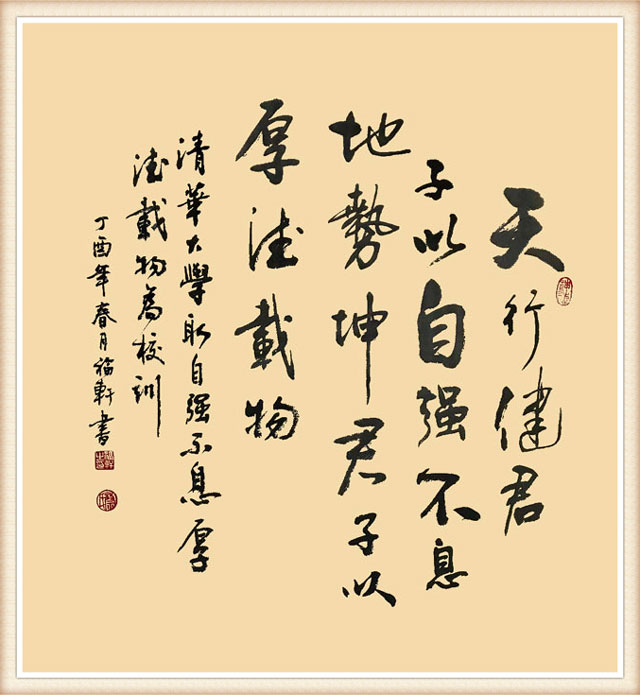 天行健君
子以自强不息
地勢坤君子以
厚德載物
清華大學取自强不息厚
德載物為校訓
丁酉年春月福軒書